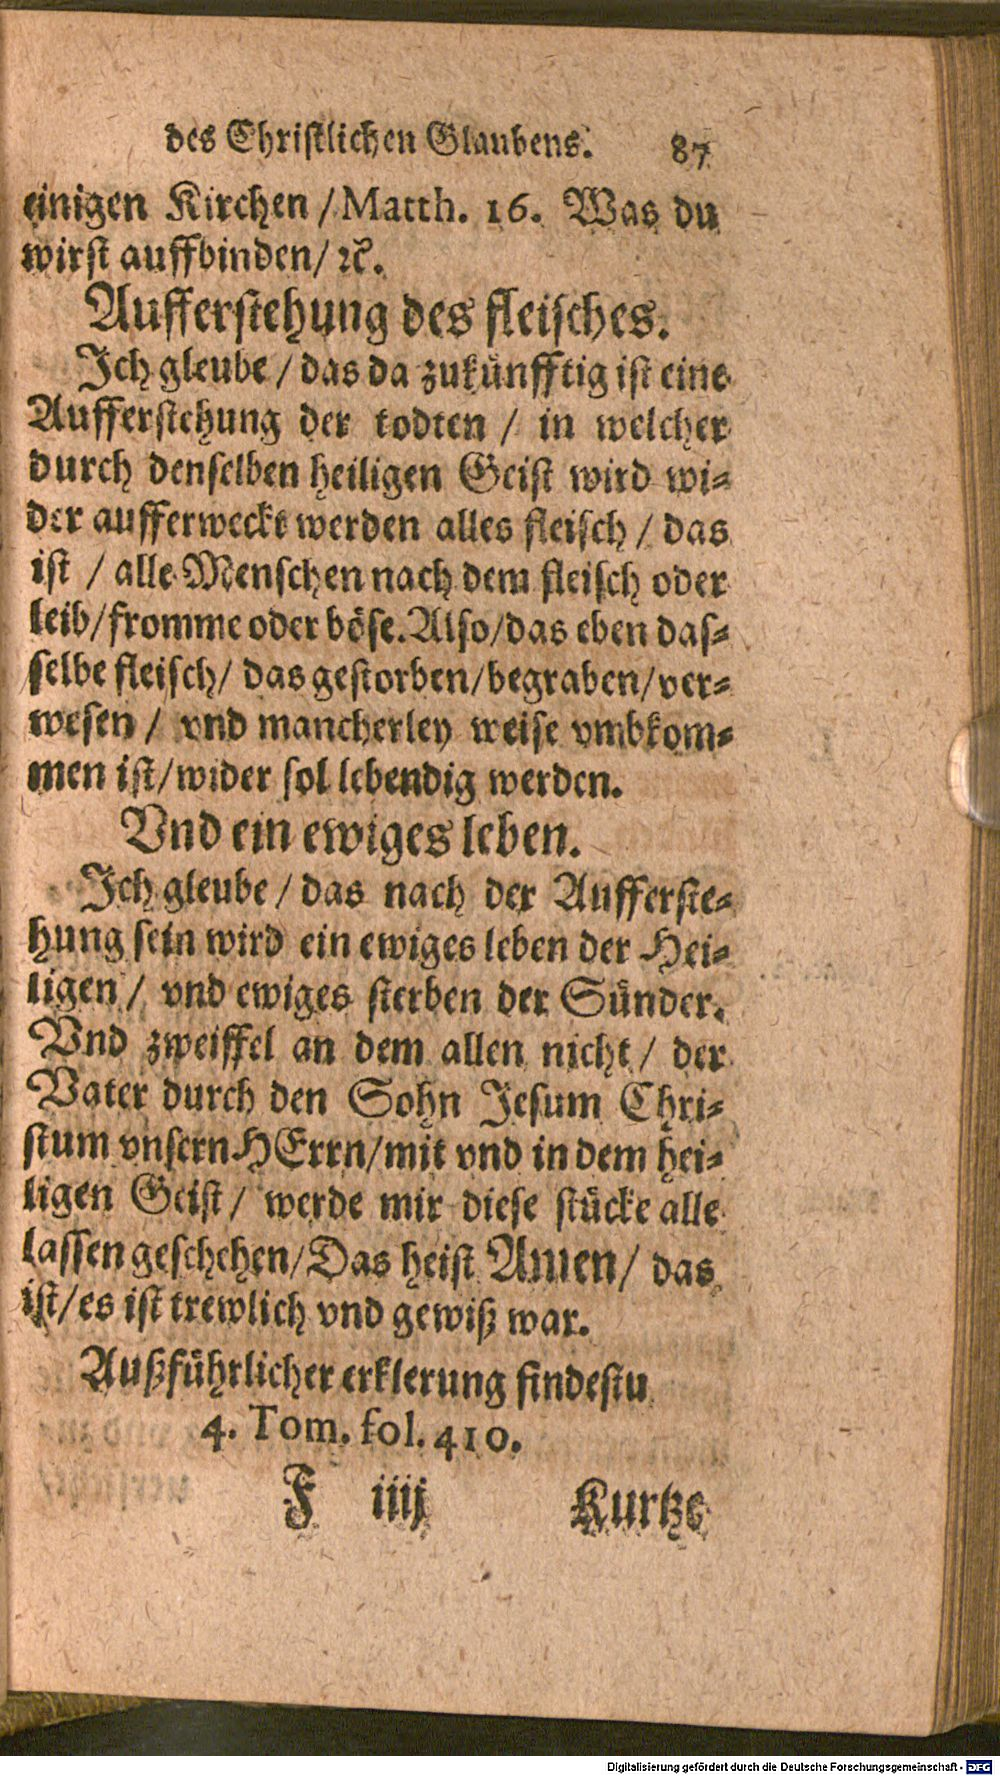 des Christlichen Glaubens. 87
einigen Kirchen / Matth. 16. Was du
wirst auffbinden / ꝛc.
Aufferstehung des fleisches.
Ich gleube / das da zukünfftig ist eine
Aufferstehung der todten / in welcher
durch denselben heiligen Geist wird wi-
der aufferweckt werden alles fleisch / das
ist / alle Menschen nach dem fleisch oder
leib / fromme oder böse. Also / das eben das-
selbe fleisch / das gestorben / begraben / ver-
wesen / vnd mancherley weise vmbkom-
men ist / wider sol lebendig werden.
Vnd ein ewiges leben.
Ich gleube / das nach der Aufferste-
hung sein wird ein ewiges leben der Hei-
ligen / vnd ewiges sterben der Sünder.
Vnd zweiffel an dem allen nicht / der
Vater durch den Sohn Jesum Chri-
stum vnsern HErrn / mit vnd in dem hei-
ligen Geist / werde mir diese stücke alle
lassen geschehen / Das heist Amen / das
ist / es ist trewlich vnd gewiß war.
Außführlicher erklerung findestu
4. Tom. fol. 410.
F iiij Kurtze
Digitalisierung gefördert durch die Deutsche Forschungsgemeinschaft - DFG